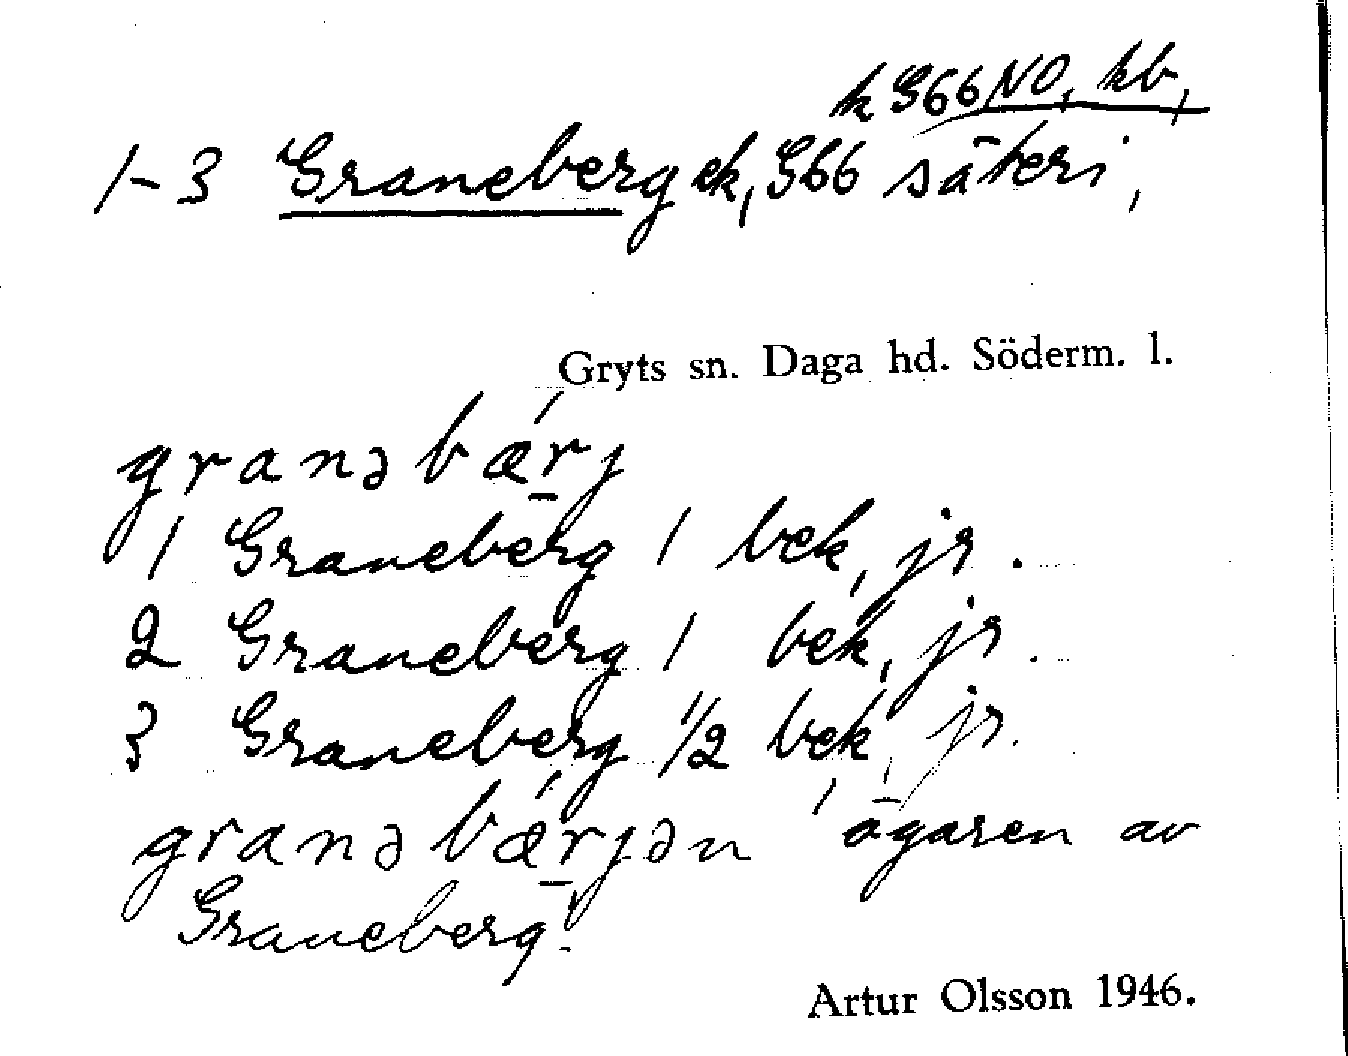 k G66 NO, kb,
1-3 Graneberg ek, G66 säteri,
Gryts sn. Daga hd. Söderm. l.
granəbærj
1 Graneberg 1 bek, jr.
2 Graneberg 1 bek, jr.
3 Graneberg 1/2 bek, jr.
granəbærjən 'ägaren av
Graneberg'.
Artur Olsson 1946.